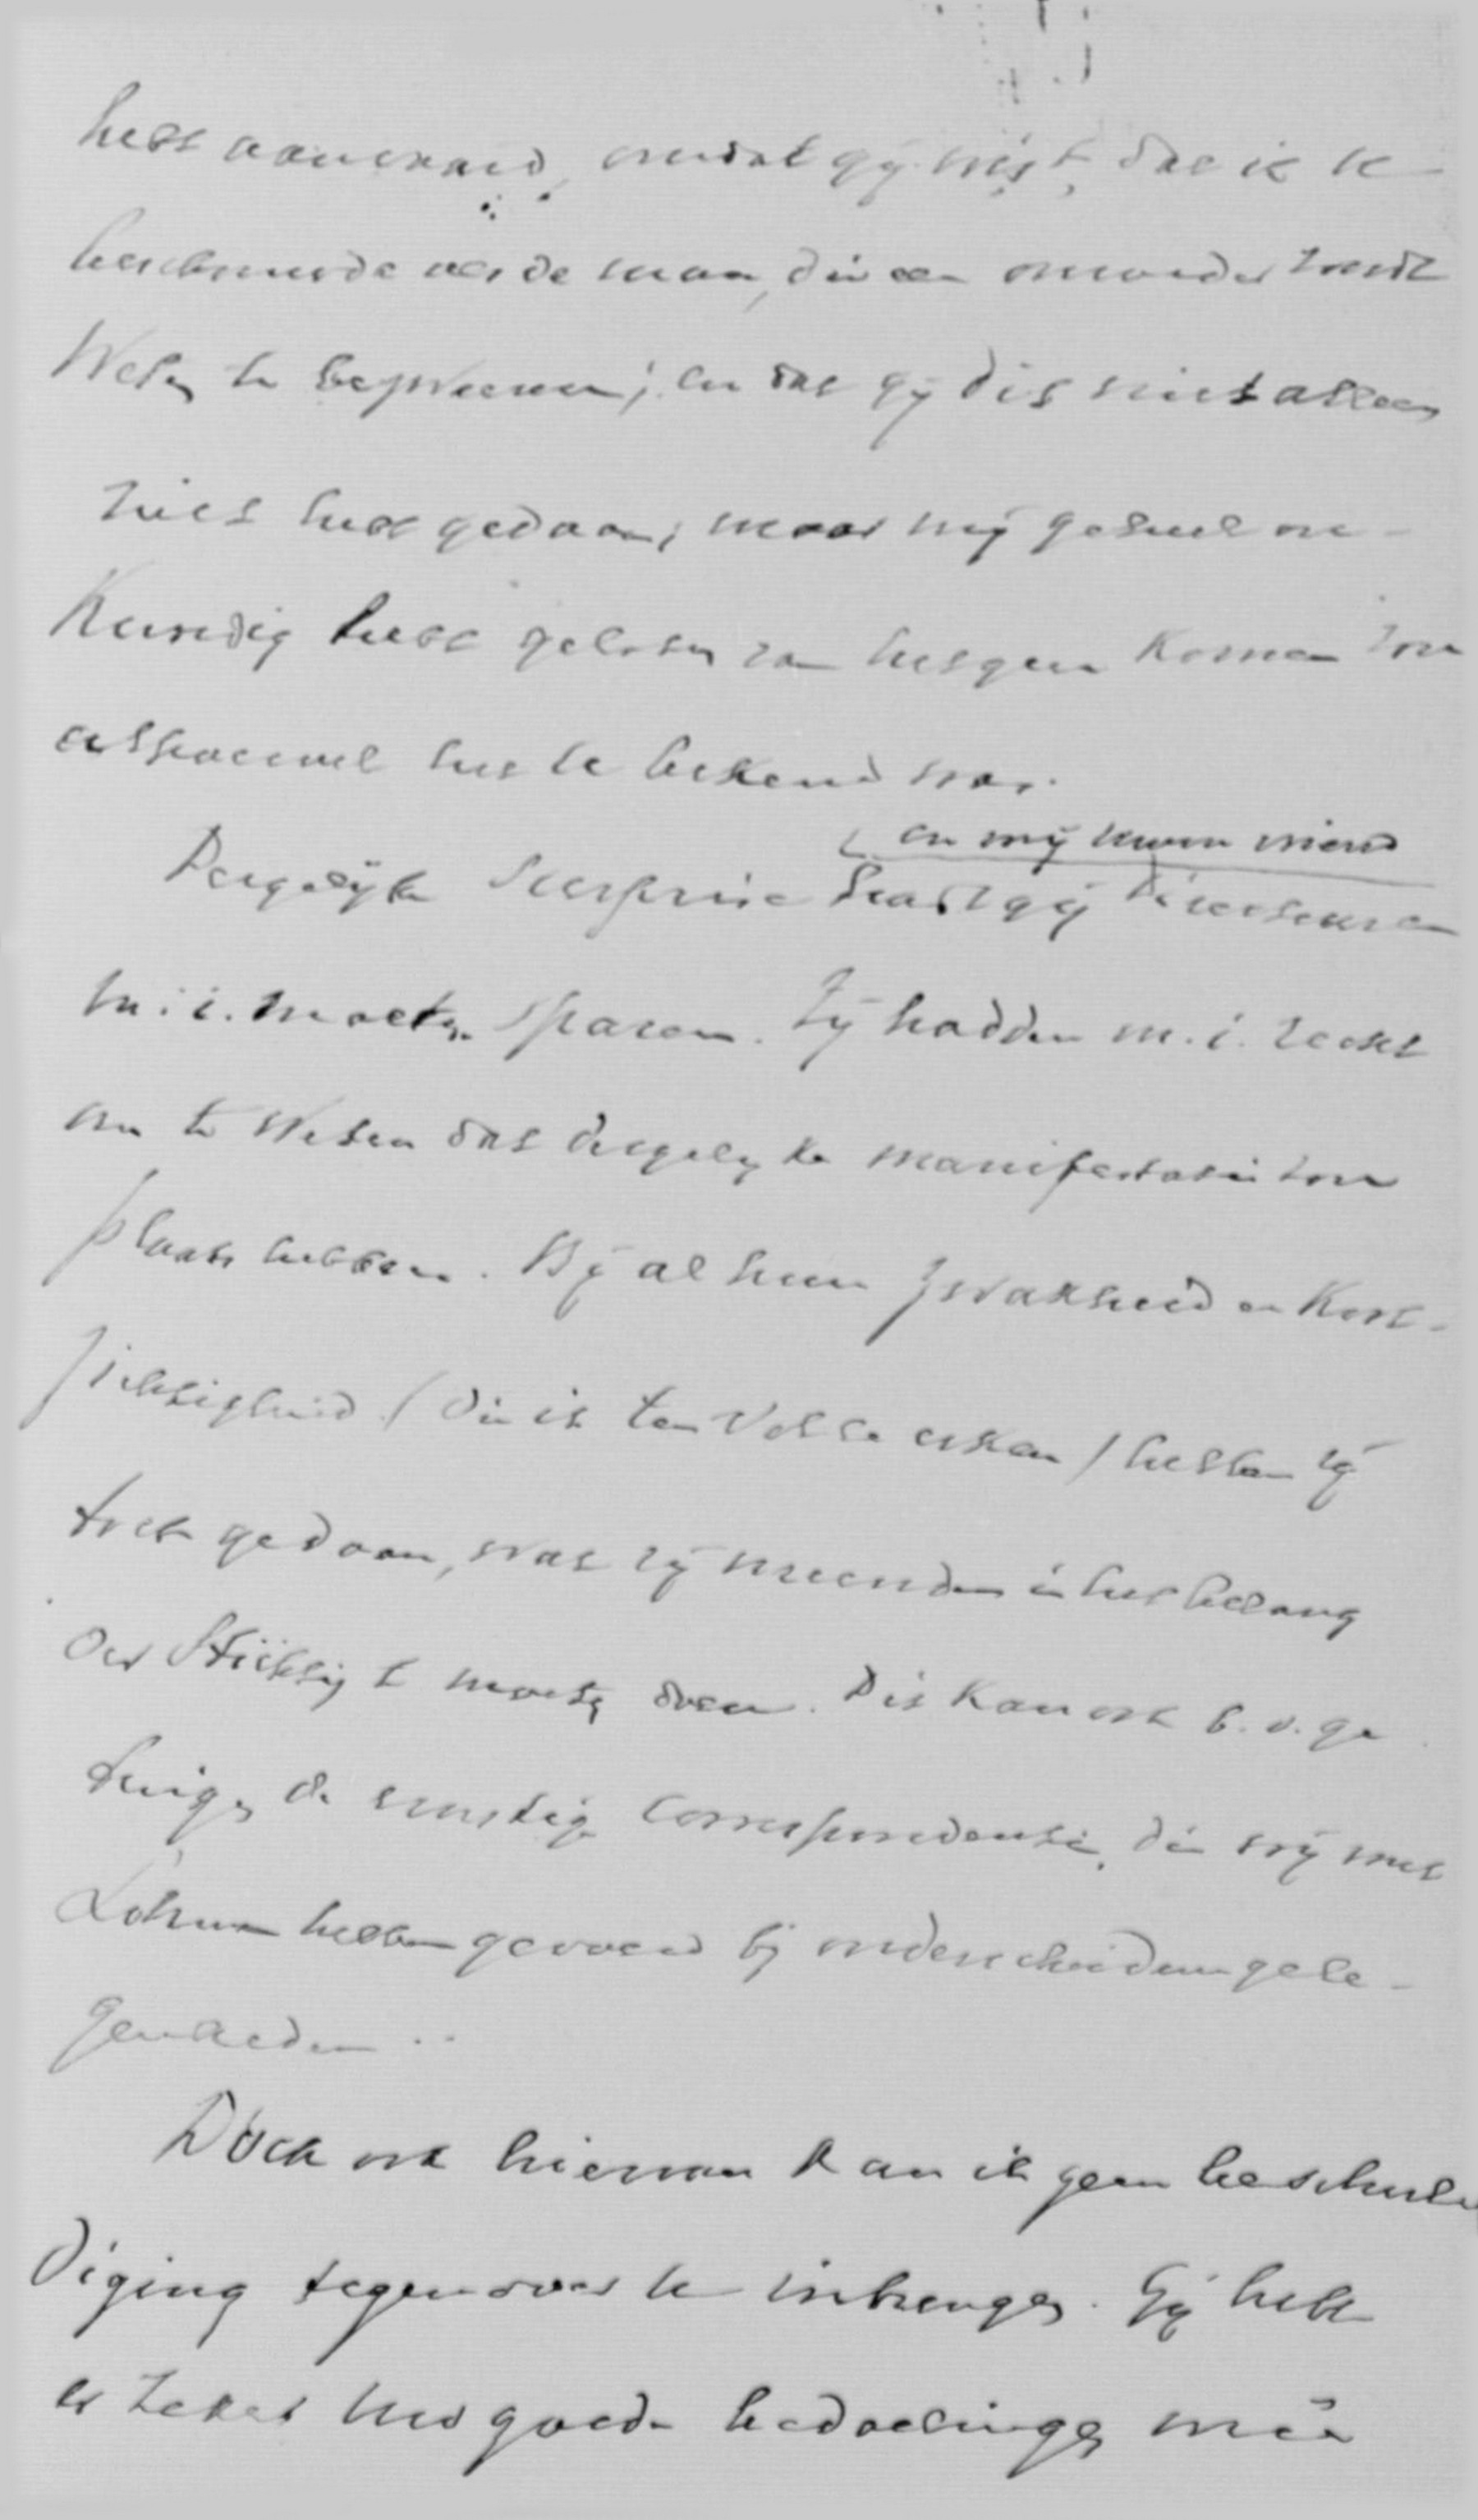 hebt aanvaard, omdat gij wist, dat ik U
beschouwde als de man, die een onweder zoudt
Weten te bezweren; en dat gij dit niet alleen
niet hebt gedaan, maar mij geheel on-
Kundig hebt gelaten van hetgeen Komen zou
alhoewel het U bekend was.
en mijn vriend
Dergelijke Surprise hadt gij Directeuren
m.i. moeten sparen. Zij hadden m.i. recht
om te Weten dat dergelijke manifestatie zou
plaats hebben. Bij al hun zwakheid en Kort-
zichtigheid (die ik ten Volle erken) hebben zij
toch gedaan, wat zij meenden in het belang
der Stichting te moeten doen. Dit Kan ook b.v. ge
tuigen de ernstige Correspondentie, die wij met
Lohman hebben gevoerd bij onderscheidene gele-
genheden..
Doch ook hiervan kan ik geen beschul-
diging tegenover U inbrengen. Gij hebt
er zeker Uw goede bedoelingen mêe